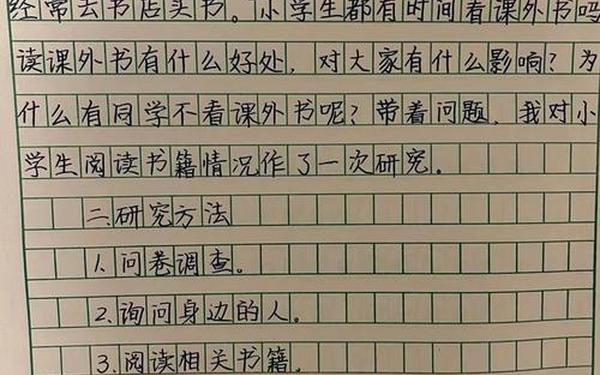 经常去书店买书。小学生都有时间看课外书吗
读课外书有什么好处，对大家有什么影响？为
什么有同学不看课外书呢？带着问题，我对小
学生阅读书籍情况作了一次研究。
二.研究方法
1.问卷调查。
2.询问身边的人。
3.阅读相关书籍。